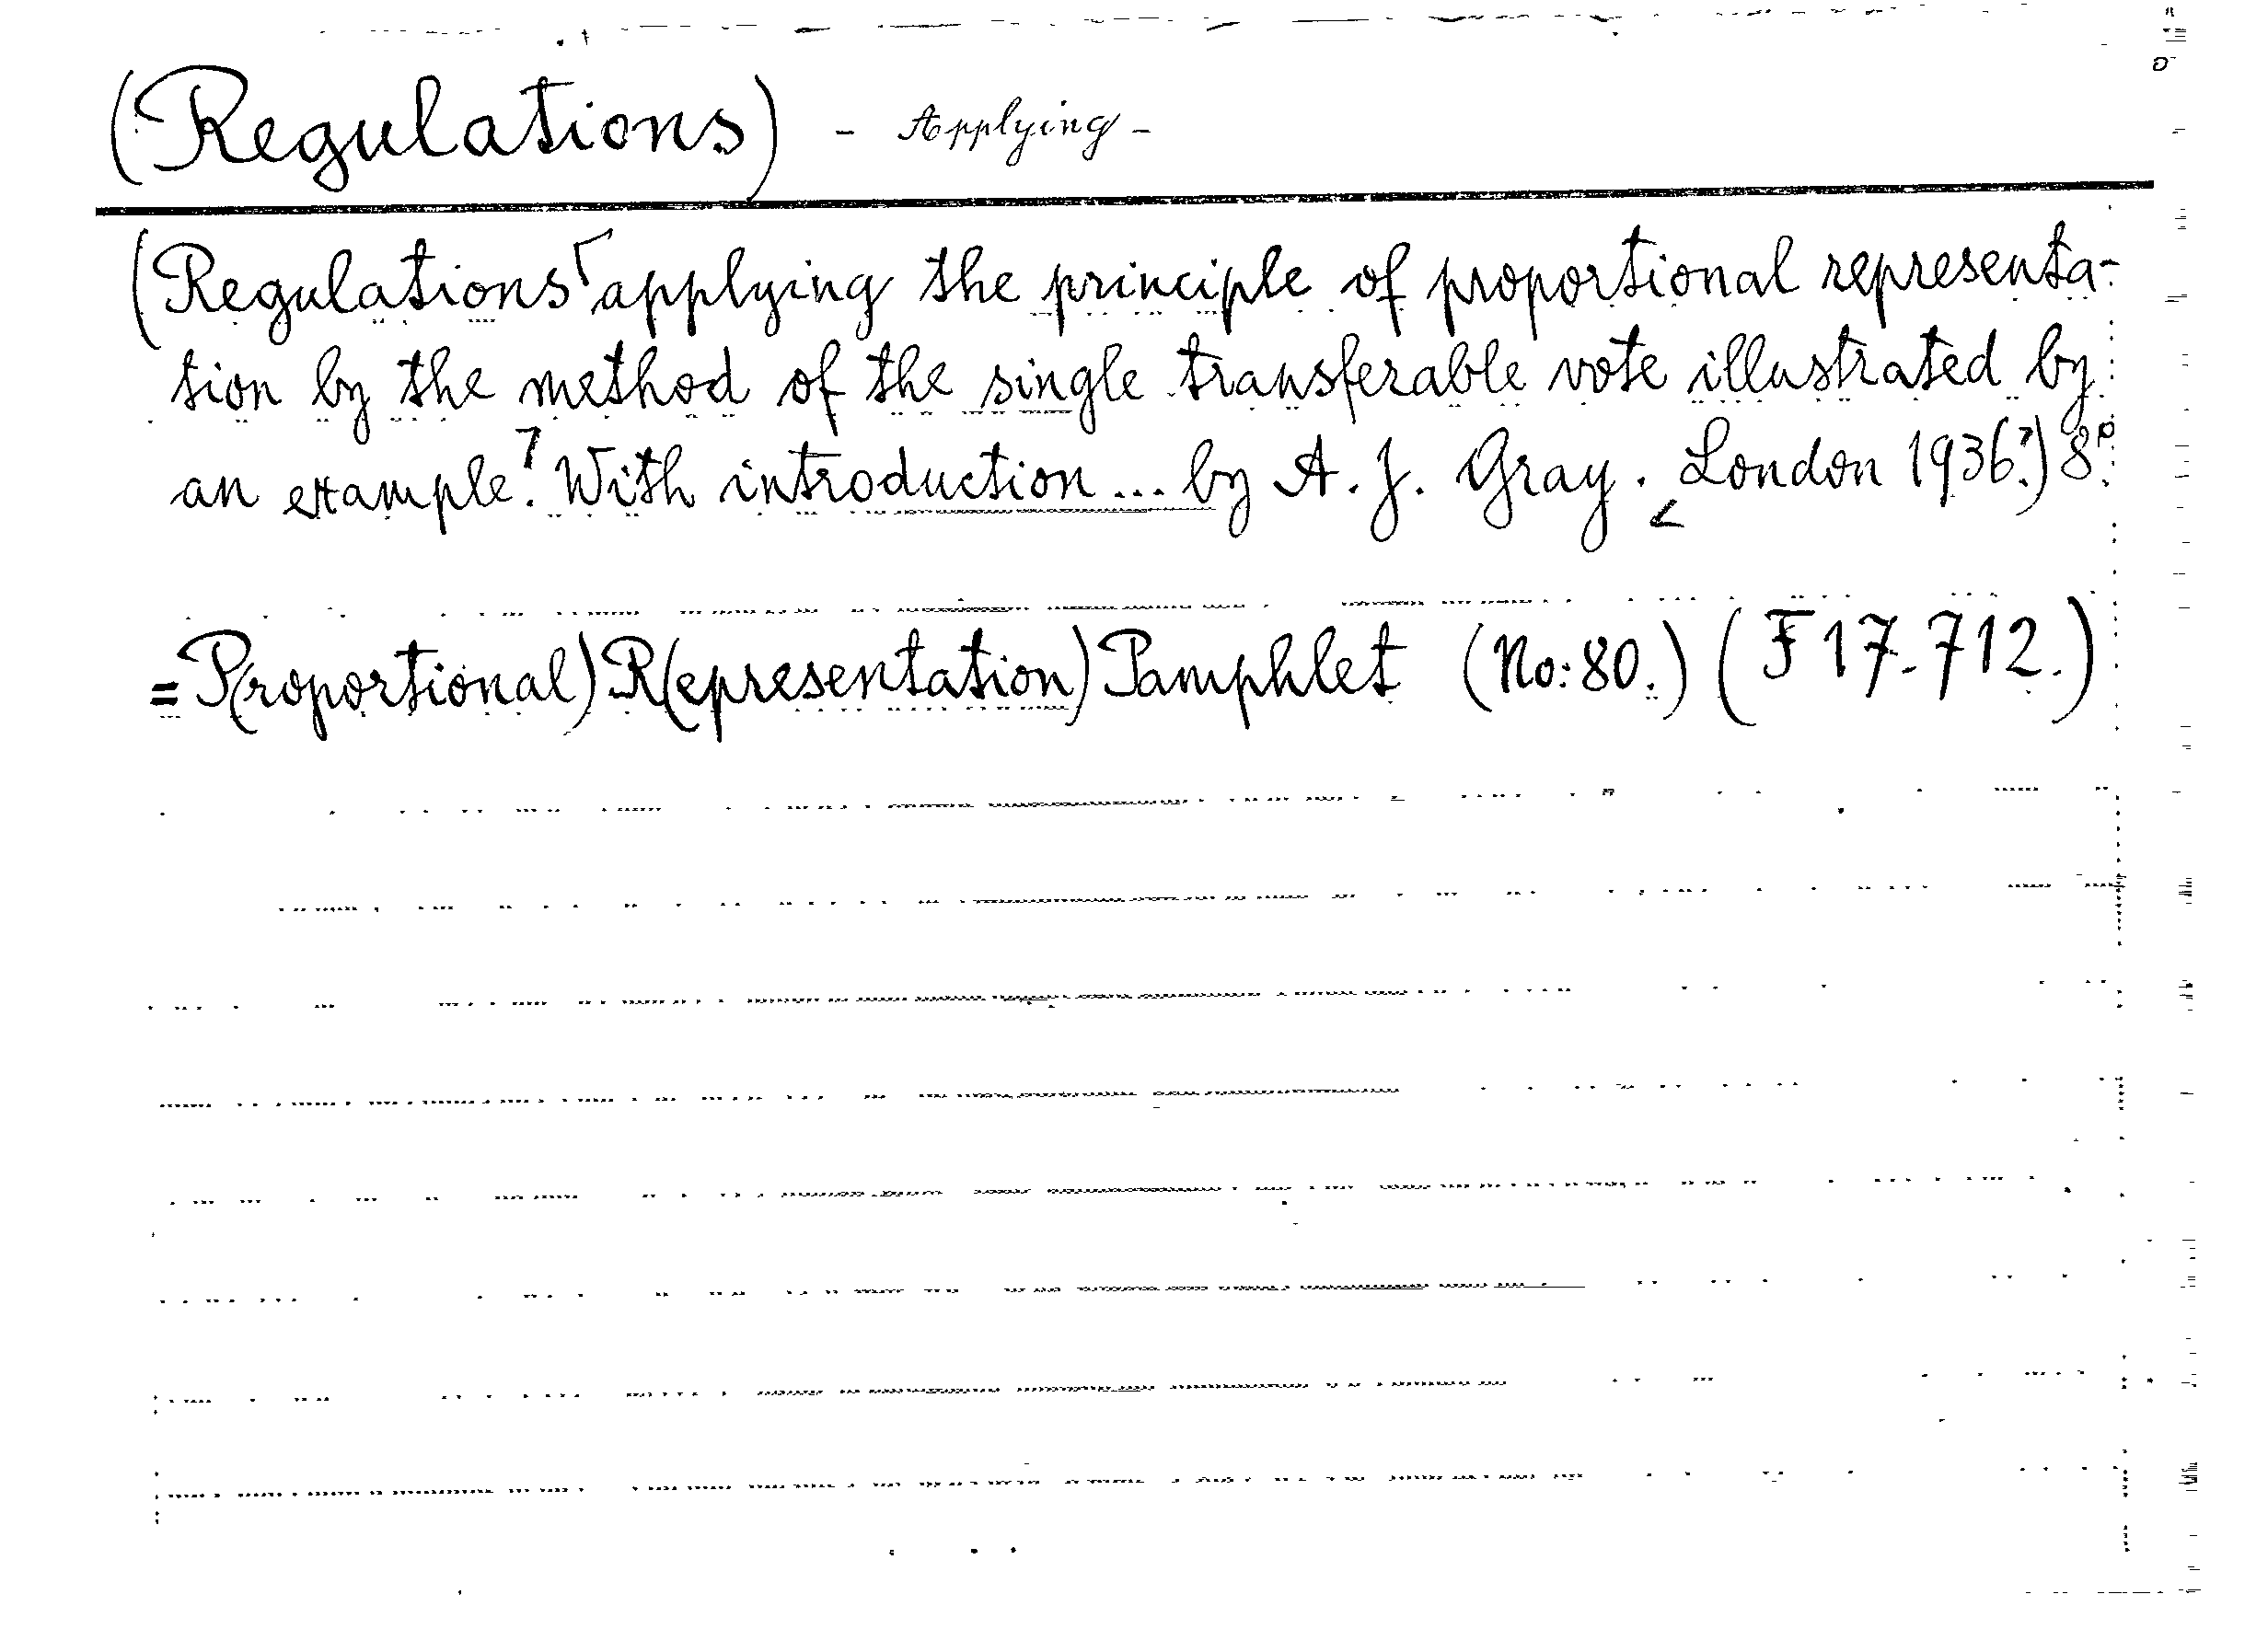 (Regulations) - Applying -
(Regulations applying the principle of proportional representa-
tion by the method of the single transferable vote illustrated by
an example. With introduction ... by A. J. Gray. London 1936.) 8°
=P(roportional) R(epresentation) Pamphlet (No: 80.) (F 17.712.)